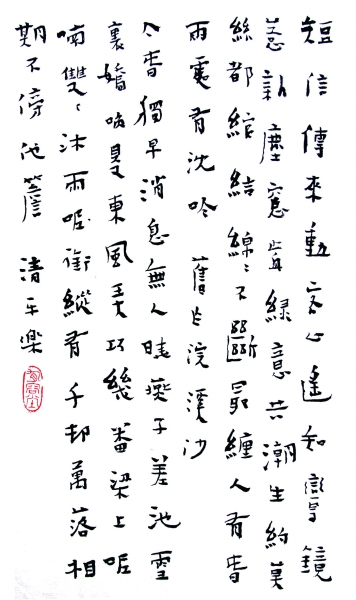 短信傳來動客心遙知鸞鏡
惹新塵窗前綠意共潮生約莫
絲都綰結綿綿不斷最纏人有春
雨處有沈吟 舊作浣溪沙
今春獨早消息無人曉燕子差池雪
裏嬌是東風弄巧幾番梁上呢
喃雙雙沐雨銜縱有千邨萬落相
期不傍他簷 清平樂